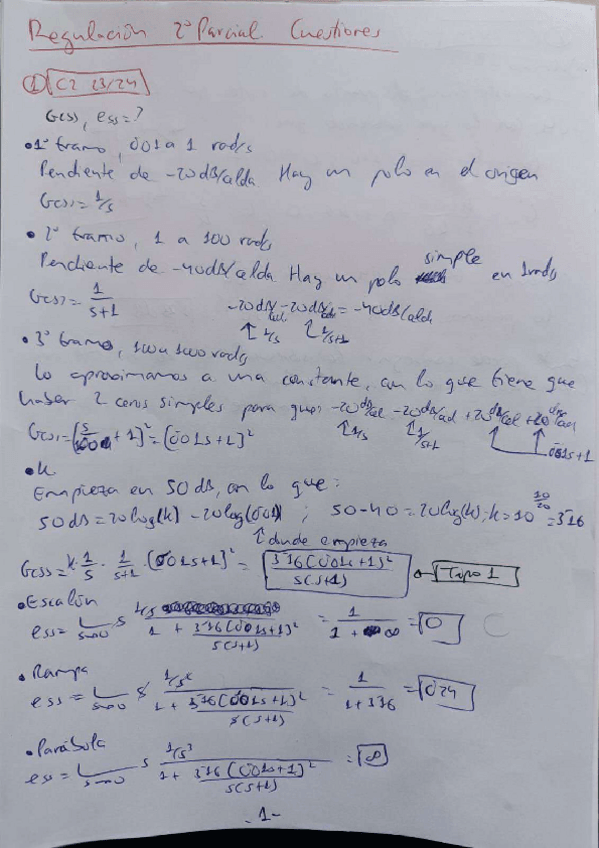 Regulación 2º Parcial. Cuestiones
① C2 23/24
G(s), ess=?
• 1º tramo, 0'01 a 1 rad/s
Pendiente de -20dB/cada Hay un polo en el origen
G(s)=1/s
• 2º tramo, 1 a 100 rad/s
Pendiente de -40dB/cada Hay un polo simple en 1rad/s
G(s)= 1/(s+1) -20dB/cad -20dB/cad = -40dB/cada
↑1/s ↑1/s+1
• 3º tramo, 100 a 1000 rad/s
Lo aproximamos a una constante, con lo que tiene que
haber 2 ceros simples para que: -20dB/cad -20dB/cad +20dB/cad +20dB/cad
↑1/s ↑1/s+1 0'01s+1
G(s)=(s/100 + 1)² = (0'01s+1)²
• k
Empieza en 50dB, con lo que:
50dB = 20log(k) - 20log(0'01) ; 50-40=20log(k); k=10^(10/20) =3'16
↑donde empieza
G(s)= k·1/s · 1/(s+1) · (0'01s+1)² = 3'16(0'01s+1)²/(s(s+1)) Tipo 1
• Escalón
ess= L s→0 s (1/s)/(1 + 3'16(0'01s+1)²/(s(s+1))) = 1/(1+∞) = 0
• Rampa
ess = L s→0 s (1/s²)/(1 + 3'16(0'01s+1)²/(s(s+1))) = 1/(1+3'16) = 0'24
• Parábola
ess= L s→0 s (1/s³)/(1 + 3'16(0'01s+1)²/(s(s+1))) = ∞
- 1 -